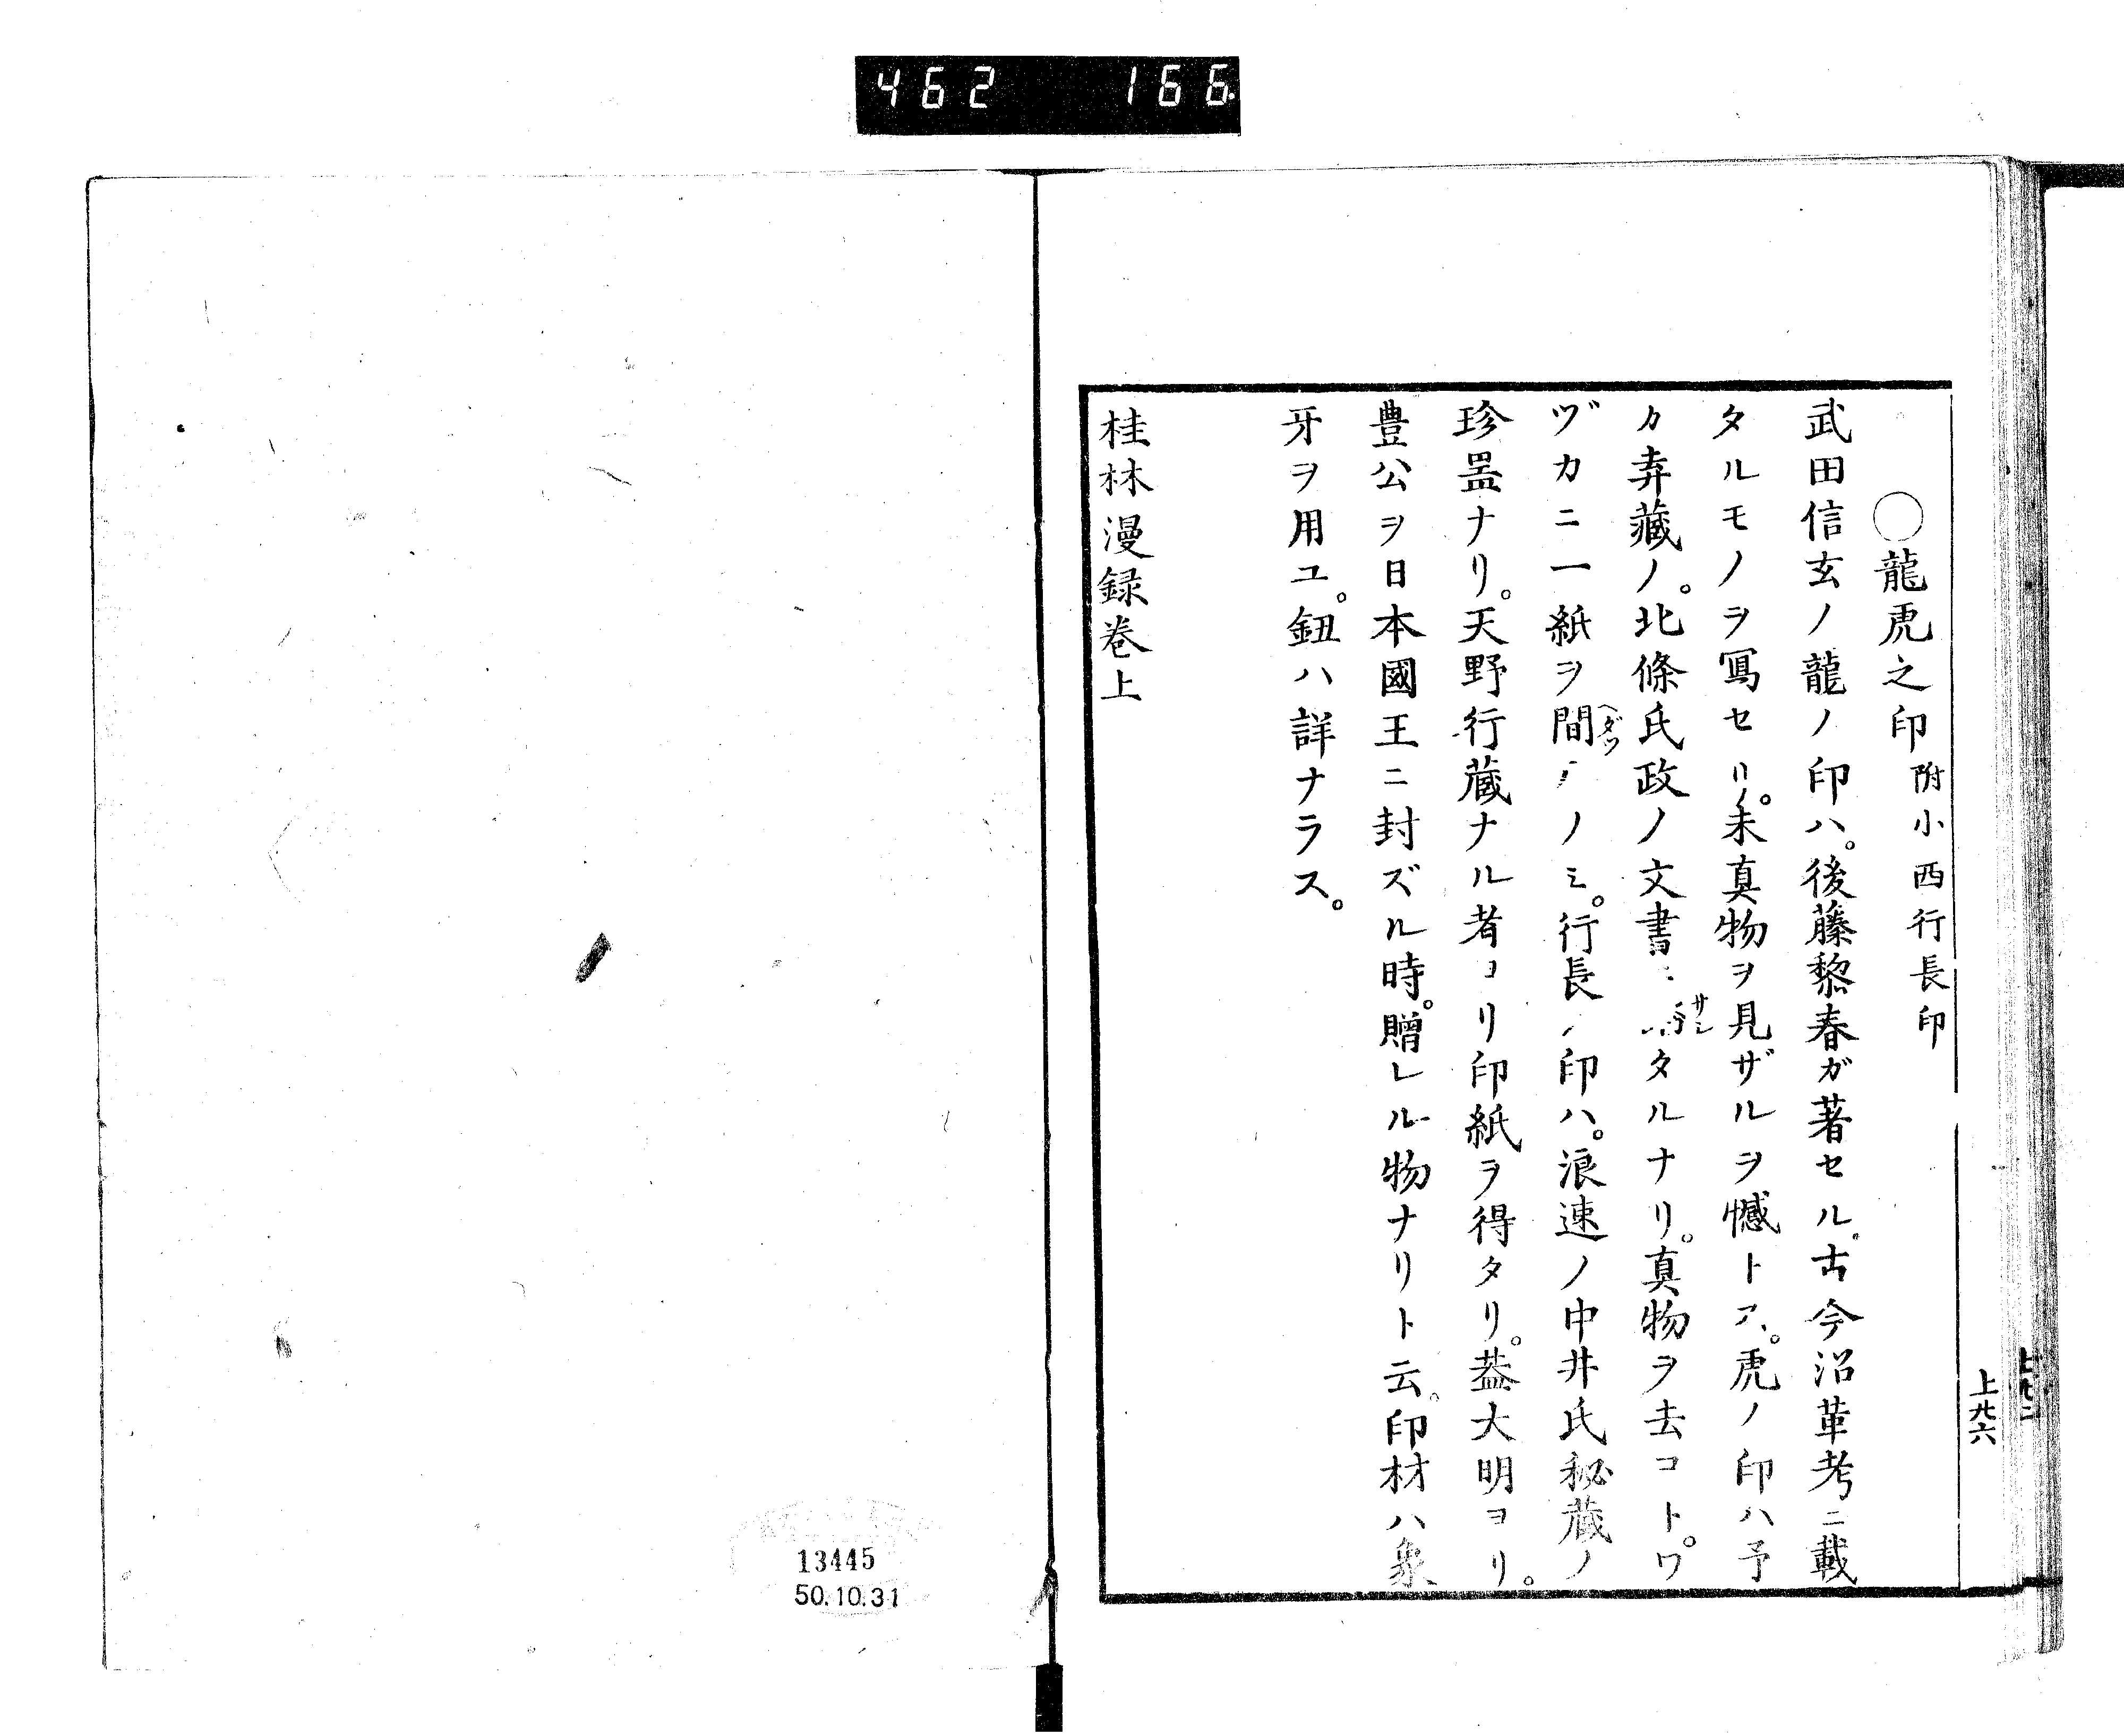 462 166
○龍虎之印 附小西行長印
武田信玄ノ龍ノ印ハ。後藤黎春ガ著セル。古今沿革考ニ載
タルモノヲ寫セリ。未真物ヲ見ザルヲ憾トス。虎ノ印ハ予
カ弆藏ノ。北條氏政ノ文書ニ タルナリ。真物ヲ去コト。ワ
ヅカニ一紙ヲ間ノミ。行長ノ印ハ。浪速ノ中井氏秘蔵ノ
ヘダツ
サレ
珍噐ナリ。天野行蔵ナル者ヨリ印紙ヲ得タリ。葢大明ヨリ。
豊公ヲ日本國王ニ封ズル時。贈レル物ナリト云。印材ハ象
牙ヲ用ユ。鈕ハ詳ナラス。
桂林漫録巻上
上卅六
13445
50.10.31